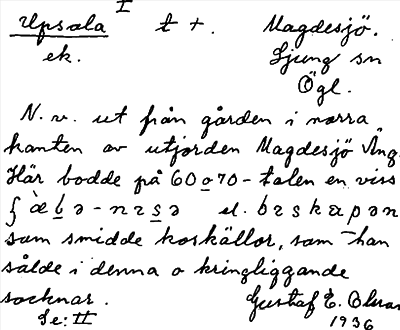 I
Upsala t +. Magdesjö.
ek. Ljung sn
Ögl.
N. v. ut från gården i norra
kanten av utjorden Magdesjö Äng.
Här bodde på 60 o 70-talen en viss
el.
som smidde koskällor, som han
sålde i denna o kringliggande
socknar. Gustaf E. Olsson
Se: II 1936